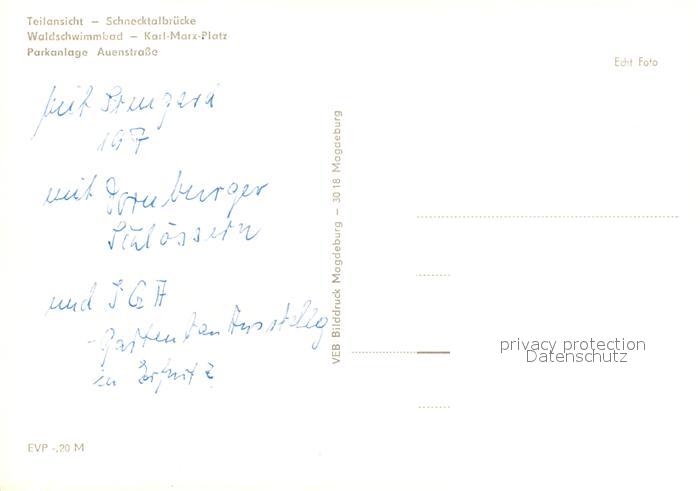 Teilansicht – Schnecktalbrücke
Waldschwimmbad – Karl-Marx-Platz
Parkanlage Auenstraße
Echt Foto
mit Irmgard
197
mit Dornburger
Schlössern
und IGA
-Gartenbau Ausstellg
in Erfurt
VEB Bilddruck Magdeburg – 3018 Magdeburg
privacy protection
Datenschutz
EVP -,20 M